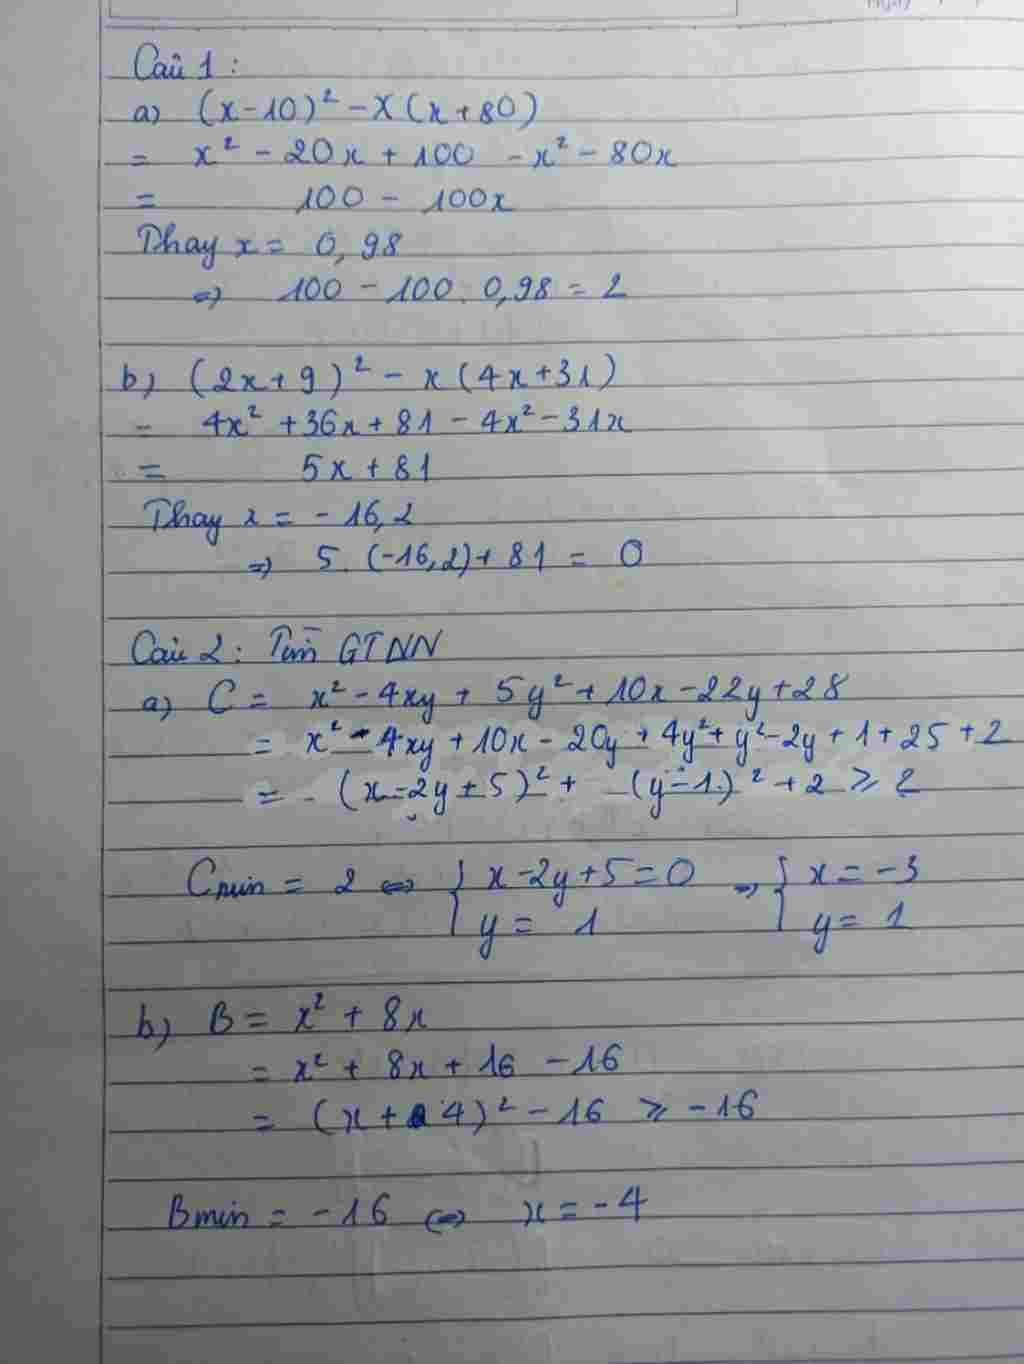 Câu 1 :
a) (x-10)² - x(x+80)
= x² - 20x + 100 - x² - 80x
= 100 - 100x
Thay x = 0,98
=> 100 - 100 . 0,98 = 2
b) (2x+9)² - x(4x+31)
= 4x² + 36x + 81 - 4x² - 31x
= 5x + 81
Thay x = - 16,2
=> 5 . (-16,2) + 81 = 0
Câu 2 : Tìm GTNN
a) C = x² - 4xy + 5y² + 10x - 22y + 28
= x² - 4xy + 10x - 20y + 4y² + y² - 2y + 1 + 25 + 2
= (x - 2y + 5)² + (y - 1)² + 2 ≥ 2
Cmin = 2 <=> { x - 2y + 5 = 0 => { x = -3
y = 1 y = 1
b) B = x² + 8x
= x² + 8x + 16 - 16
= (x + 4)² - 16 ≥ -16
Bmin = -16 <=> x = -4